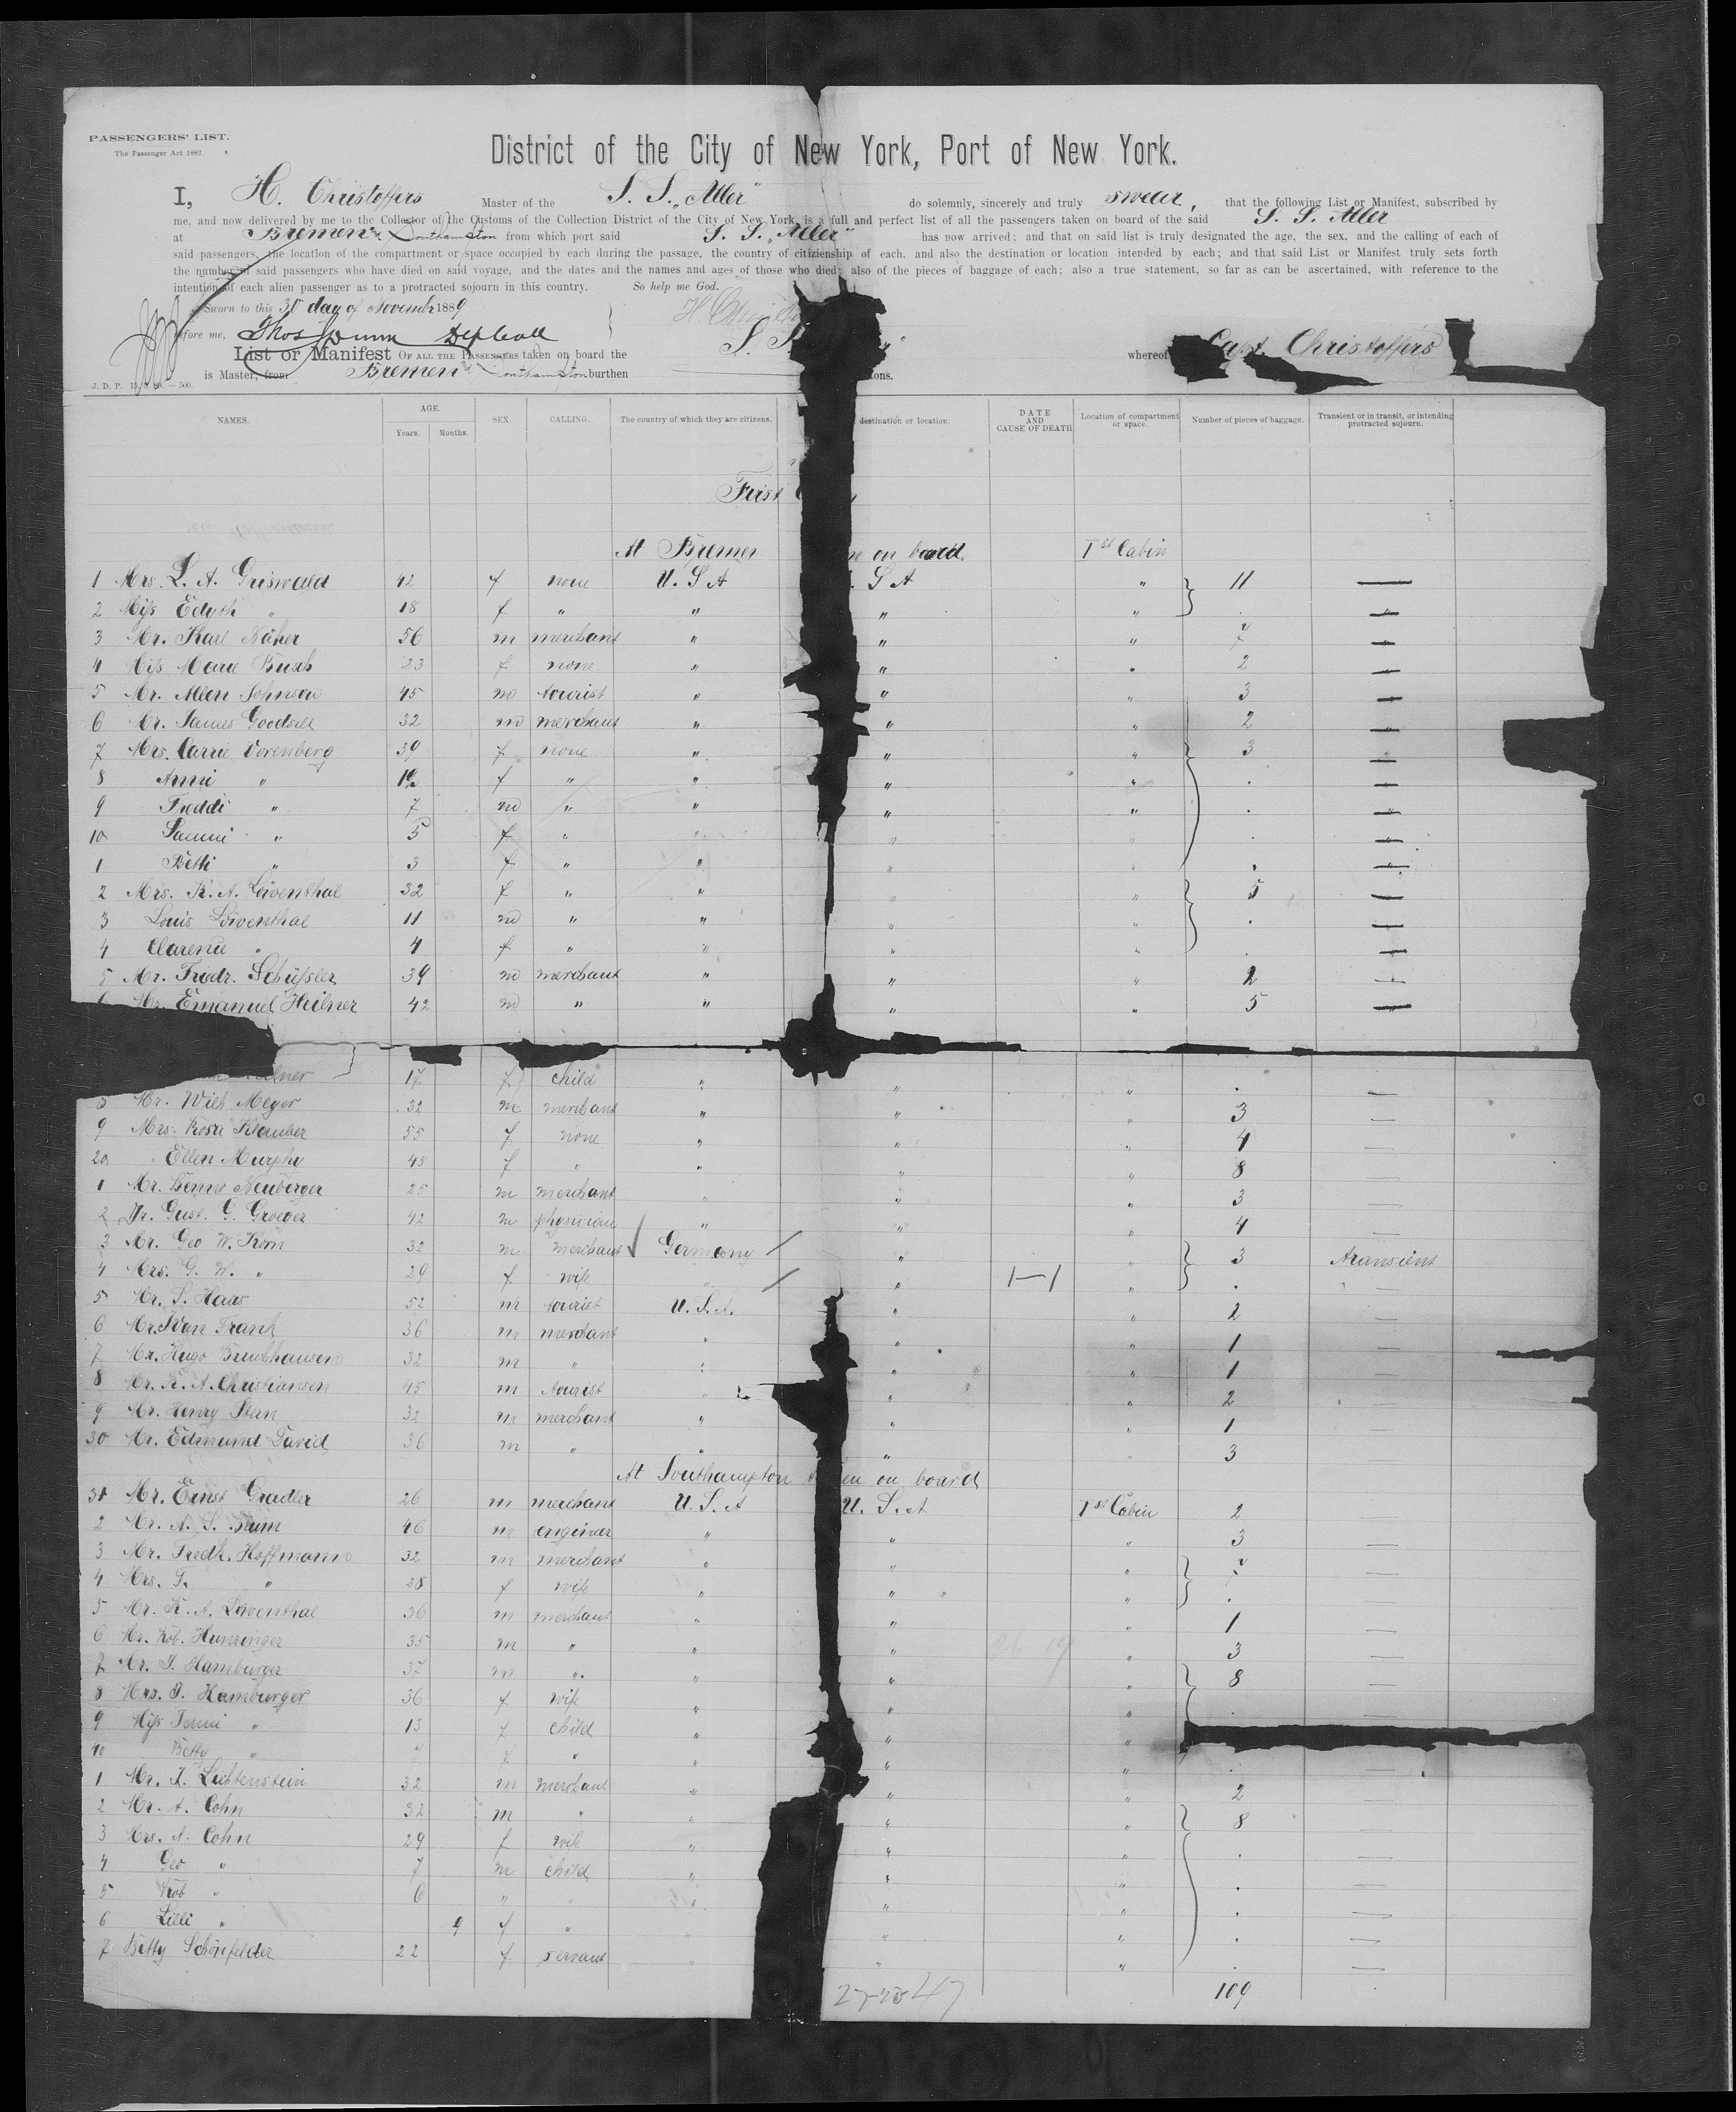 PASSENGERS' LIST.
The Passenger Act 1882.
District of the City of New York, Port of New York.
I, H. Christoffers Master of the S. S. „Aller" do solemnly, sincerely and truly swear, that the following List or Manifest, subscribed by
me, and now delivered by me to the Collector of the Customs of the Collection District of the City of New York, is a full and perfect list of all the passengers taken on board of the said S. S. Aller
at Bremen & Southampton from which port said S. S. „Aller" has now arrived; and that on said list is truly designated the age, the sex, and the calling of each of
said passengers, the location of the compartment or space occupied by each during the passage, the country of citizienship of each, and also the destination or location intended by each; and that said List or Manifest truly sets forth
the number of said passengers who have died on said voyage, and the dates and the names and ages of those who died; also of the pieces of baggage of each; also a true statement, so far as can be ascertained, with reference to the
intention of each alien passenger as to a protracted sojourn in this country. So help me God.
Sworn to this 30 day of November 1889
before me,
List or Manifest OF ALL THE PASSENGERS taken on board the S. S. whereof Capt. Christoffers
is Master, from Bremen & Southampton burthen tons.
J. D. P.
NAMES. AGE. SEX. CALLING. The country of which they are citizens. destination or location. DATE AND CAUSE OF DEATH Location of compartment or space. Number of pieces of baggage. Transient or in transit, or intending protracted sojourn.
Years. Months.
First
At Bremen on board 1st Cabin
1 Mrs. L. A. Griswald 42 f none U. S A S A " 11 —
2 Miss Edyth " 18 f " " " " . —
3 Mr. Karl Näher 56 m merchant " " " 7 —
4 Miss Marie Busch 23 f none " " " 2 —
5 Mr. Allen Johnson 45 m tourist " " " 3 —
6 Mr. James Goodsell 32 m merchant " " " 2 —
7 Mrs. Carrie Vorenberg 39 f none " " " 3 "
8 Anni " 12 f " " " " . —
9 Freddi " 7 m " " " " . "
10 " 5 f " " " " .
1 Betti " 3 f " " " " . —
2 Mrs. K. A. Löwenthal 32 f " " " " 5 —
3 Louis Löwenthal 11 m " " " " . —
4 Clarence " 4 f " " " " . —
5 Mr. Friedr. Schüssler 39 m merchant " " " 2 —
6 Mr. Emanuel Heilner 42 m " " " " 5 —
17 f child " " " . —
8 Mr. Wilh. Meyer 32 m merchant " " " 3 —
9 Mrs. Rosa Klauber 55 f none " " " 4 —
20 " Ellen Murphy 45 f " " " " 8 —
1 Mr. Benno Neuberger 25 m merchant " " " 3 —
2 Dr. Gust. G. Groeger 42 m physician " " " 4 —
3 Mr. Geo W. Korn 32 m merchant Germany " " 3 transient
4 Mrs. G. W. " 29 f wife " " 1—1 " . —
5 Mr. S. Haas 52 m tourist U. S. A. " " 2 —
6 Mr. Ivan Frank 36 m merchant " " " 1 —
7 Mr. Hugo 32 m " " " " 1 —
8 Mr. K. A. Christiansen 45 m tourist " " " 2
9 Mr. Henry Stern 32 m merchant " " " 1 —
30 Mr. Edmund David 36 m " " " " 3
At Southampton on board
31 Mr. Ernst Gradler 26 m merchant U. S. A U. S. A 1st Cabin 2 —
2 Mr. A. S. Blum 46 m engineer " " " 3 —
3 Mr. Fredk. Hoffmann 32 m merchant " " " 7 —
4 Mrs. F. " 28 f wife " " " .
5 Mr. K. A. Löwenthal 36 m merchant " " " 1 —
6 Mr. Rob. Hunzinger 35 m " " " " 3 —
7 Mr. J. Hamburger 37 m " " " " 8 —
8 Mrs. J. Hamburger 36 f wife " " " . —
9 Miss Jenni " 13 f child " " "
40 Betty " f " " " " . —
1 Mr. J. Lichtenstein 32 m merchant " " " 2
2 Mr. A. Cohn 32 m " " " " 8 —
3 Mrs. A. Cohn 29 f wife " " " . —
4 Geo " 7 m child " " " . —
5 Rob " 6 " " " " " . —
6 Lilli " 9 f " " " " . —
7 Betty Schönfelder 22 f servant " " " . —
47 109